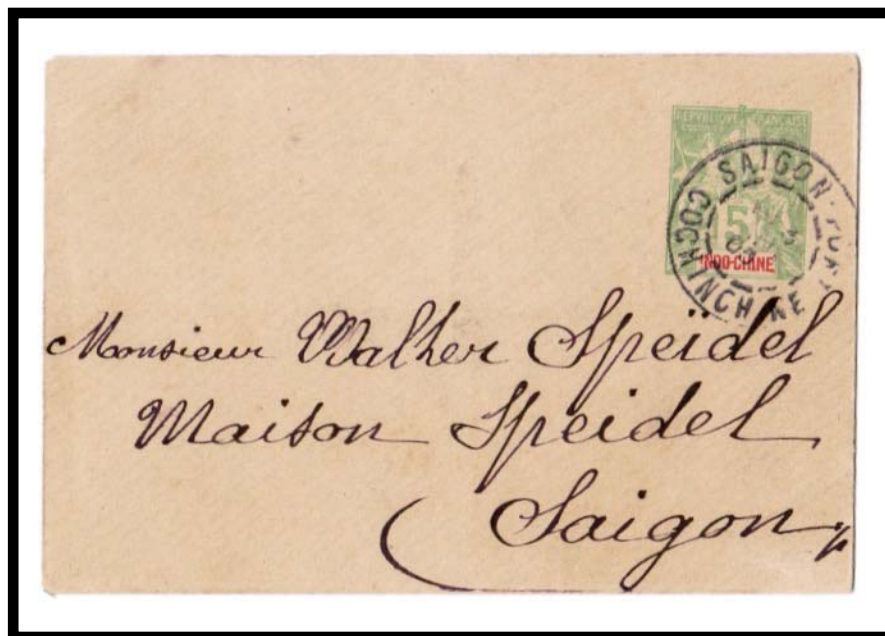 REPUBLIQUE FRANÇAISE
SAIGON-PORT
5
INDO-CHINE
COCHINCHINE
Monsieur Walther Speïdel
Maison Speidel
Saigon